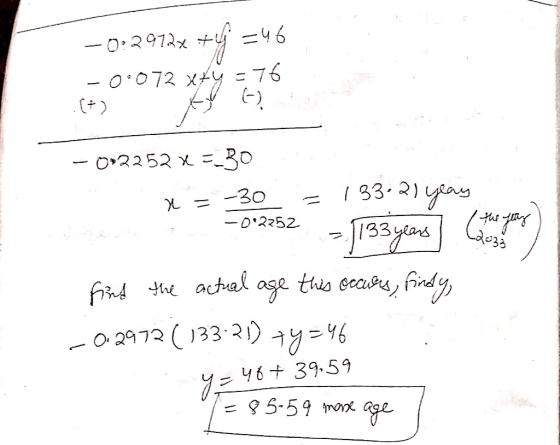 -0.2972x + y = 46
-0.072 x + y = 76
(+) (-) (-)
-0.2252 x = -30
x = -30 / -0.2252 = 133.21 years
= 133 years (the year 2033)
find the actual age this occurs, find y,
-0.2972 (133.21) + y = 46
y = 46 + 39.59
= 85.59 more age